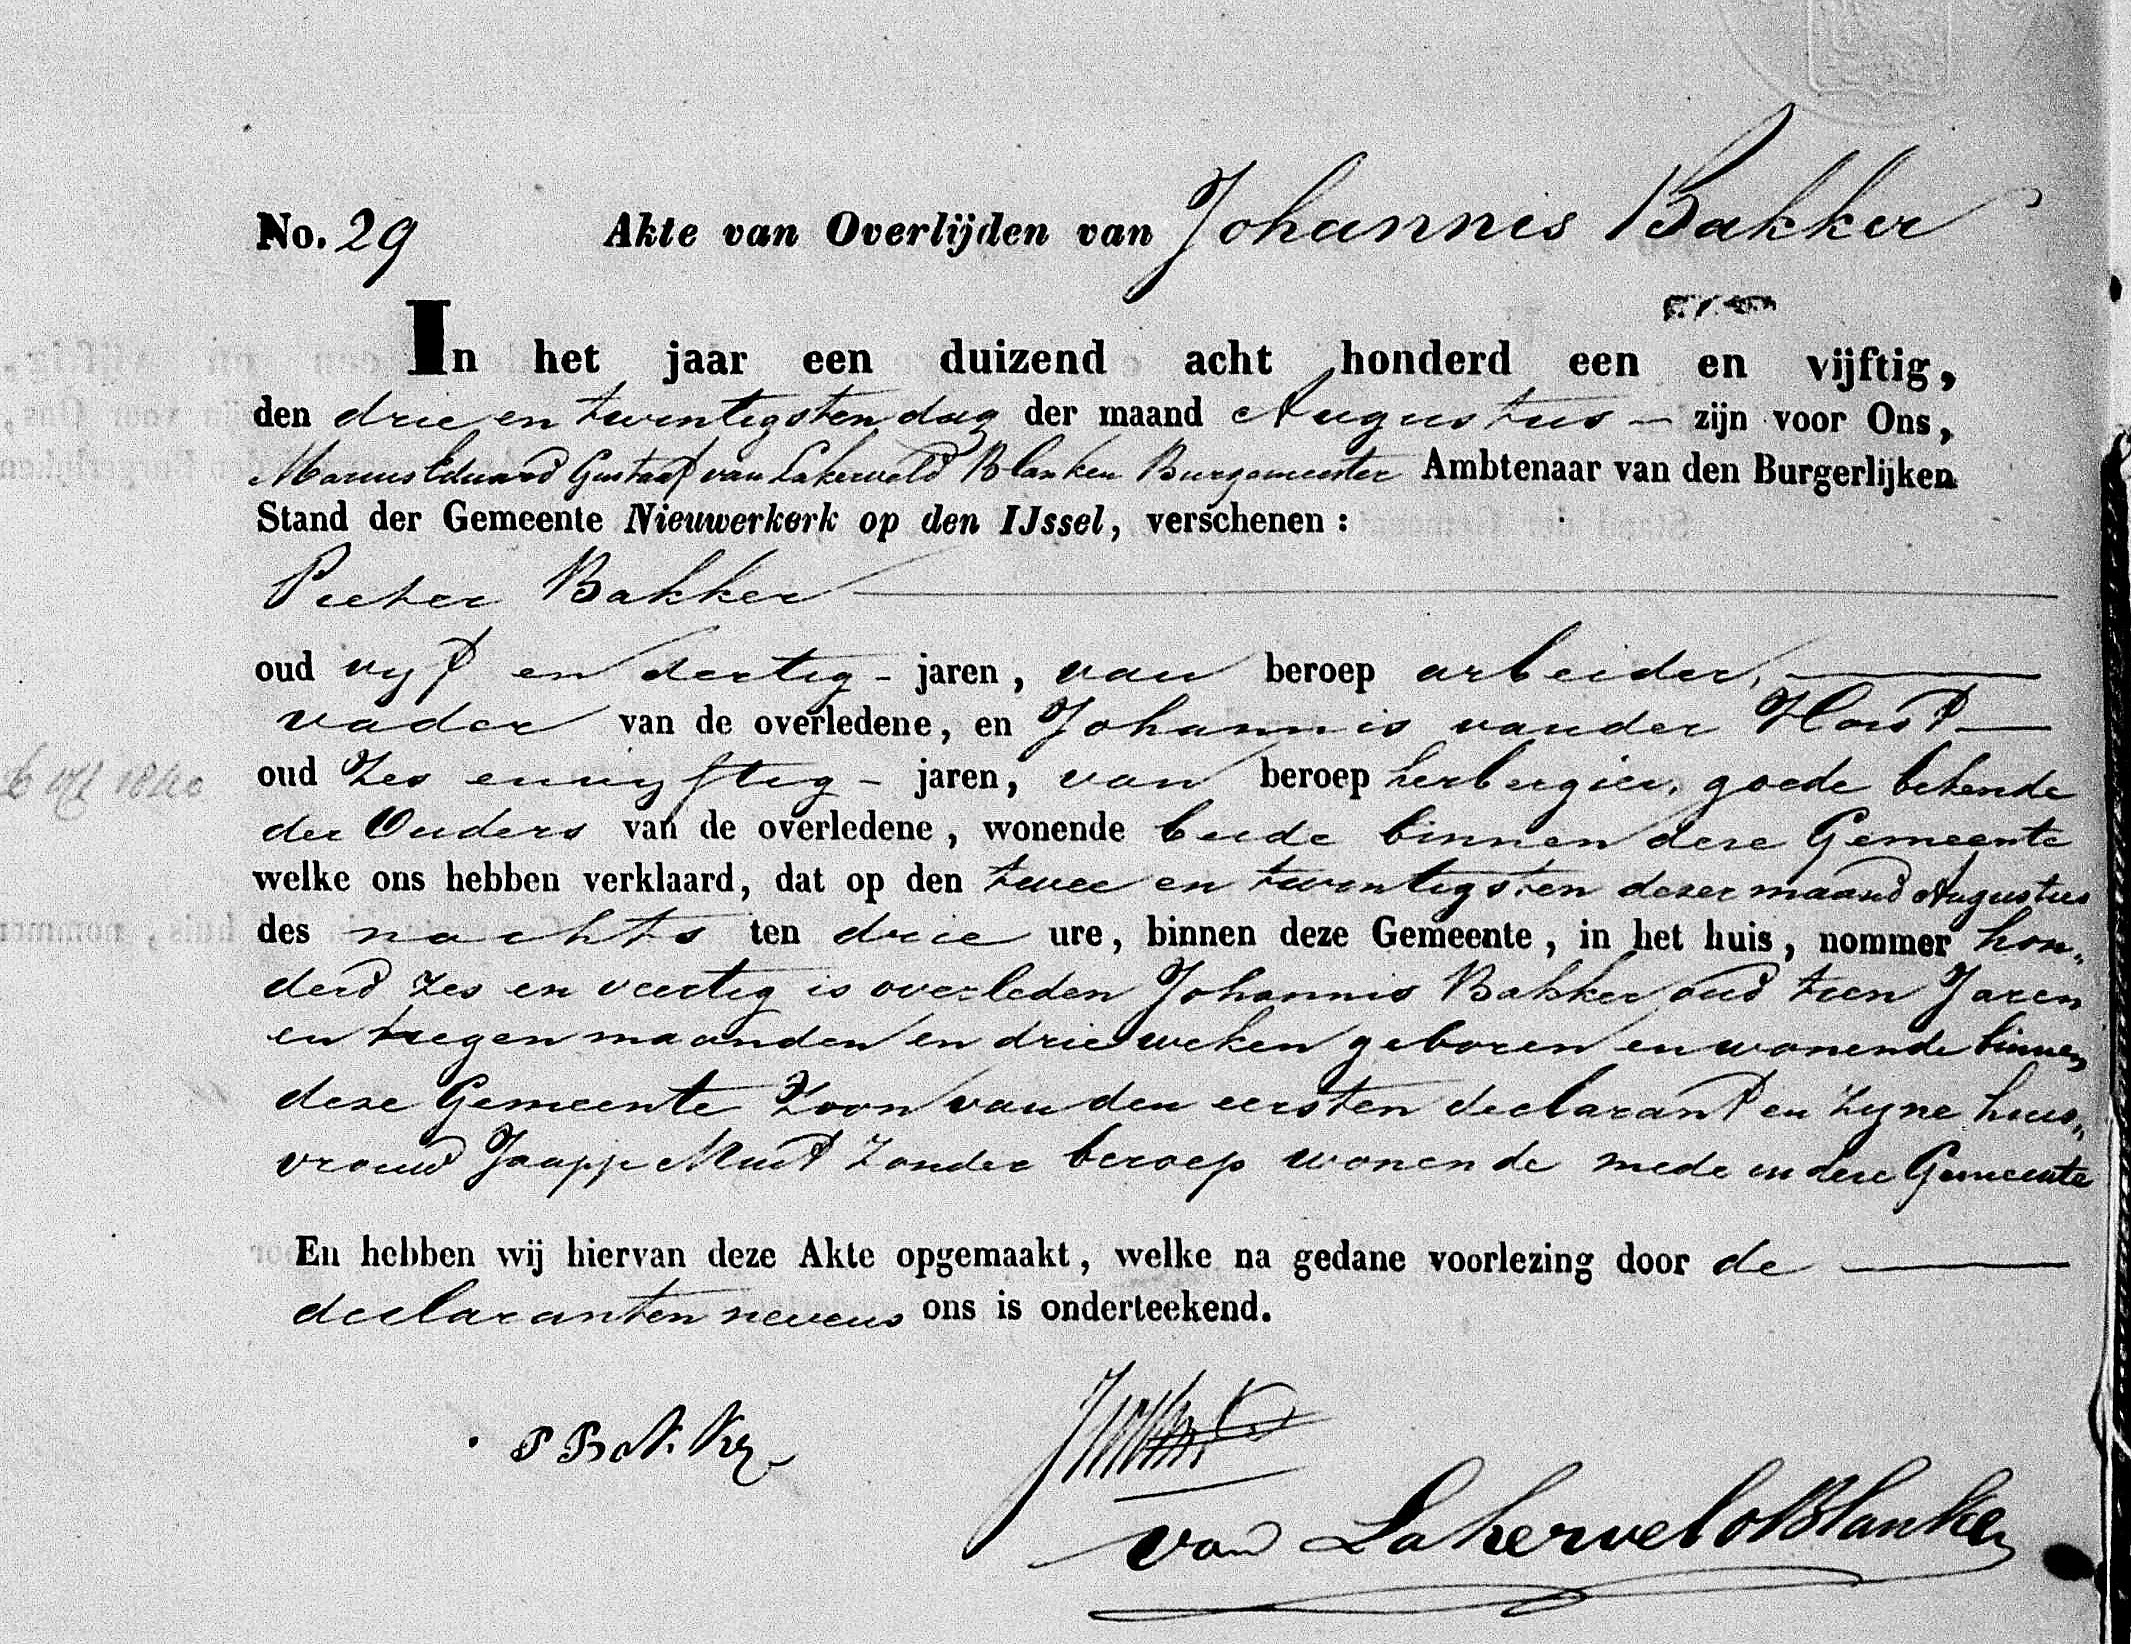 No. 29 Akte van Overlijden van Johannis Bakker
In het jaar een duizend acht honderd een en vijftig,
den drie en twintigsten dag der maand Augustus – zijn voor Ons,
Marius Eduard Gustaaf van Lakerveld Blanken Burgemeester Ambtenaar van den Burgerlijken
Stand der Gemeente Nieuwerkerk op den IJssel, verschenen :
Pieter Bakker
oud vyf en dertig – jaren, van beroep arbeider,
vader van de overledene, en Johannis vander Horst
oud Zes en vyftig – jaren, van beroep herbergier, goede bekende
der Ouders van de overledene, wonende beide binnen deze Gemeente
welke ons hebben verklaard, dat op den twee en twintigsten dezer maand Augustus
des nachts ten drie ure, binnen deze Gemeente, in het huis, nommer hon„
derd zes en veertig is overleden Johannis Bakker oud tien Jaren
en negen maanden en drie weken geboren en wonende binnen
deze Gemeente Zoon van den eersten declarant en zyne huis„
vrouw Jaapje Muit zonder beroep wonende mede in deze Gemeente
En hebben wij hiervan deze Akte opgemaakt, welke na gedane voorlezing door de
declaranten nevens ons is onderteekend.
P Bakker
van Lakerveld Blanken